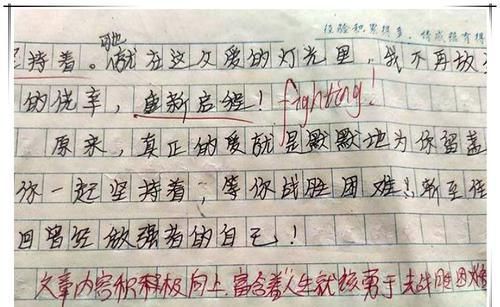 经验积累得多，
持着。就在这久爱的灯光里，我不再放
的侥幸，重新启程！fighting！
原来，真正的爱就是默默地为你留盏
你一起坚持着，等你战胜困难！
回曾经做强者的自己！
文章内容积极向上 富含着人生就该勇于去战胜困难